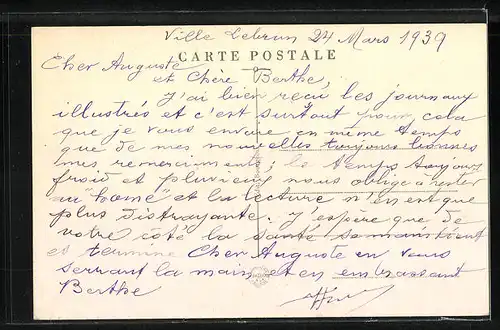 Ville Lebrun 24 Mars 1939
CARTE POSTALE
Cher Auguste
et Chère Berthe,
J'ai bien reçu les journaux
illustrés et c'est surtout pour cela
que je vous envoie en même temps
que de mes nouvelles toujours bonnes
mes remerciments; le temps toujours
froid et pluvieux nous oblige à rester
au "home" et la lecture n'en est que
plus distrayante. J'espère que de
votre côté la santé se maintient
et termine Cher Auguste en vous
serrant la main et en embrassant
Berthe